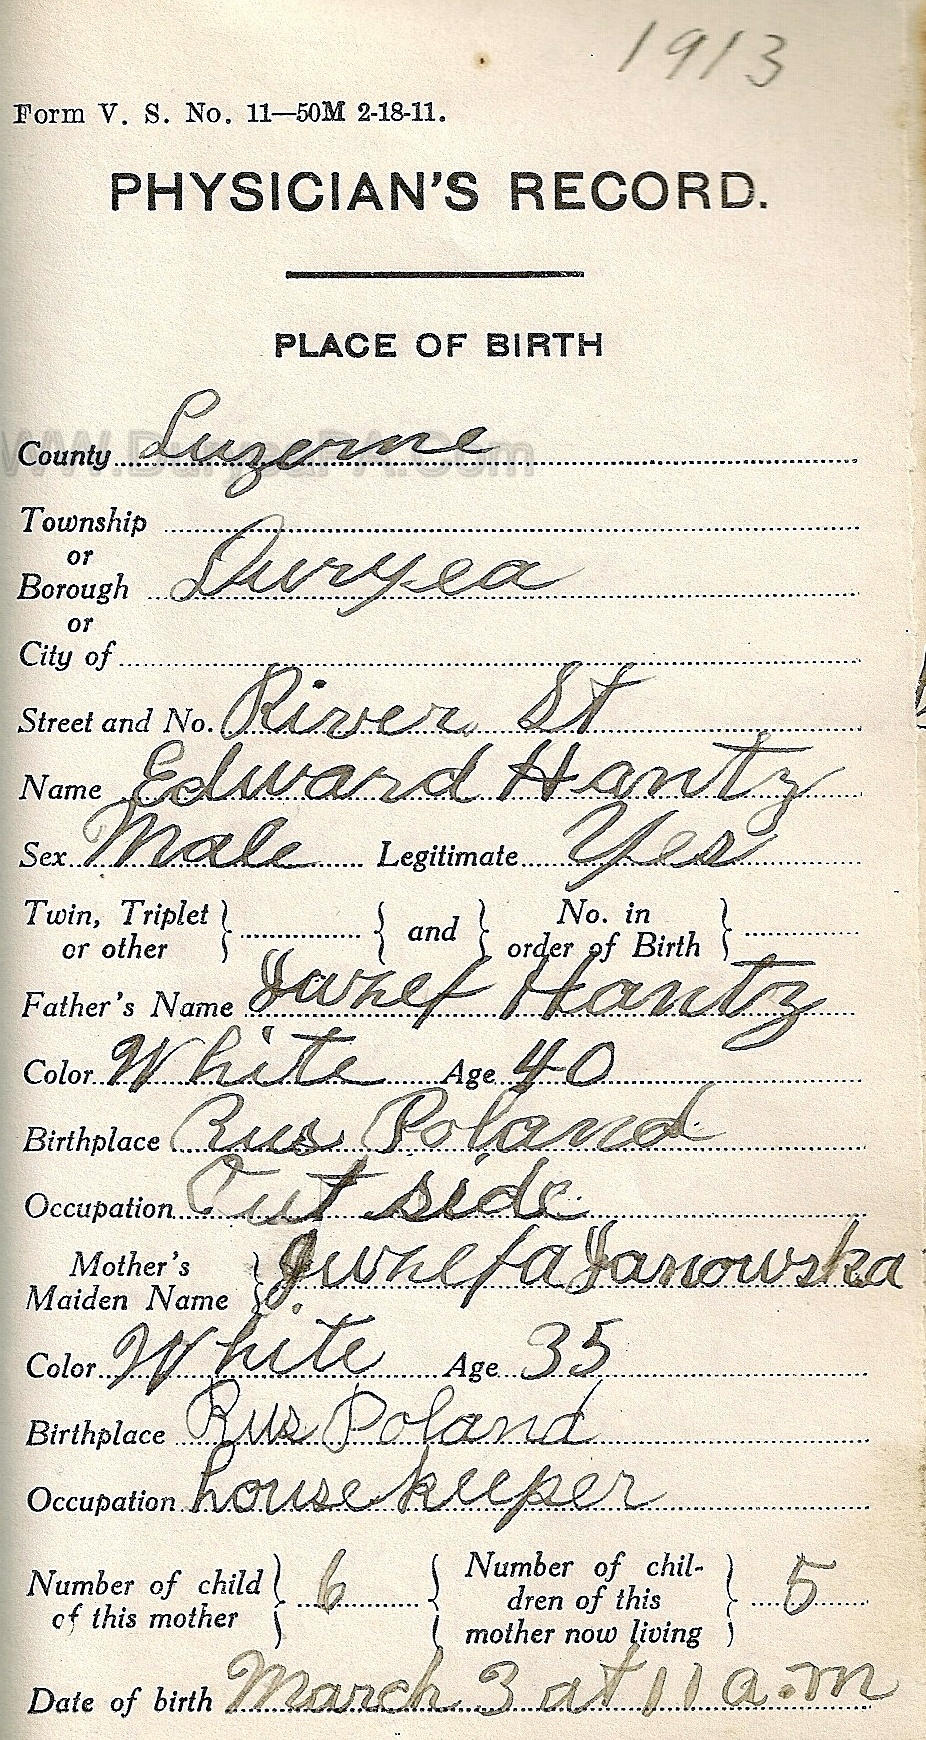 1913
Form V. S. No. 11—50M 2-18-11.
PHYSICIAN'S RECORD.
PLACE OF BIRTH
County Luzerne
WWW.DuryeaPA.Com
Township
or
Borough Duryea
or
City of
Street and No. River St
Name Edward Hantz
Sex Male Legitimate Yes
Twin, Triplet or other } { and } No. in order of Birth }
Father's Name Juzef Hantz
Color White Age 40
Birthplace Rus Poland
Occupation Out side
Mother's Maiden Name } Juzefa Janowska
Color White Age 35
Birthplace Rus Poland
Occupation house keeper
Number of child of this mother } 6 { Number of chil-
dren of this
mother now living } 5
Date of birth March 3 at 11 a.m